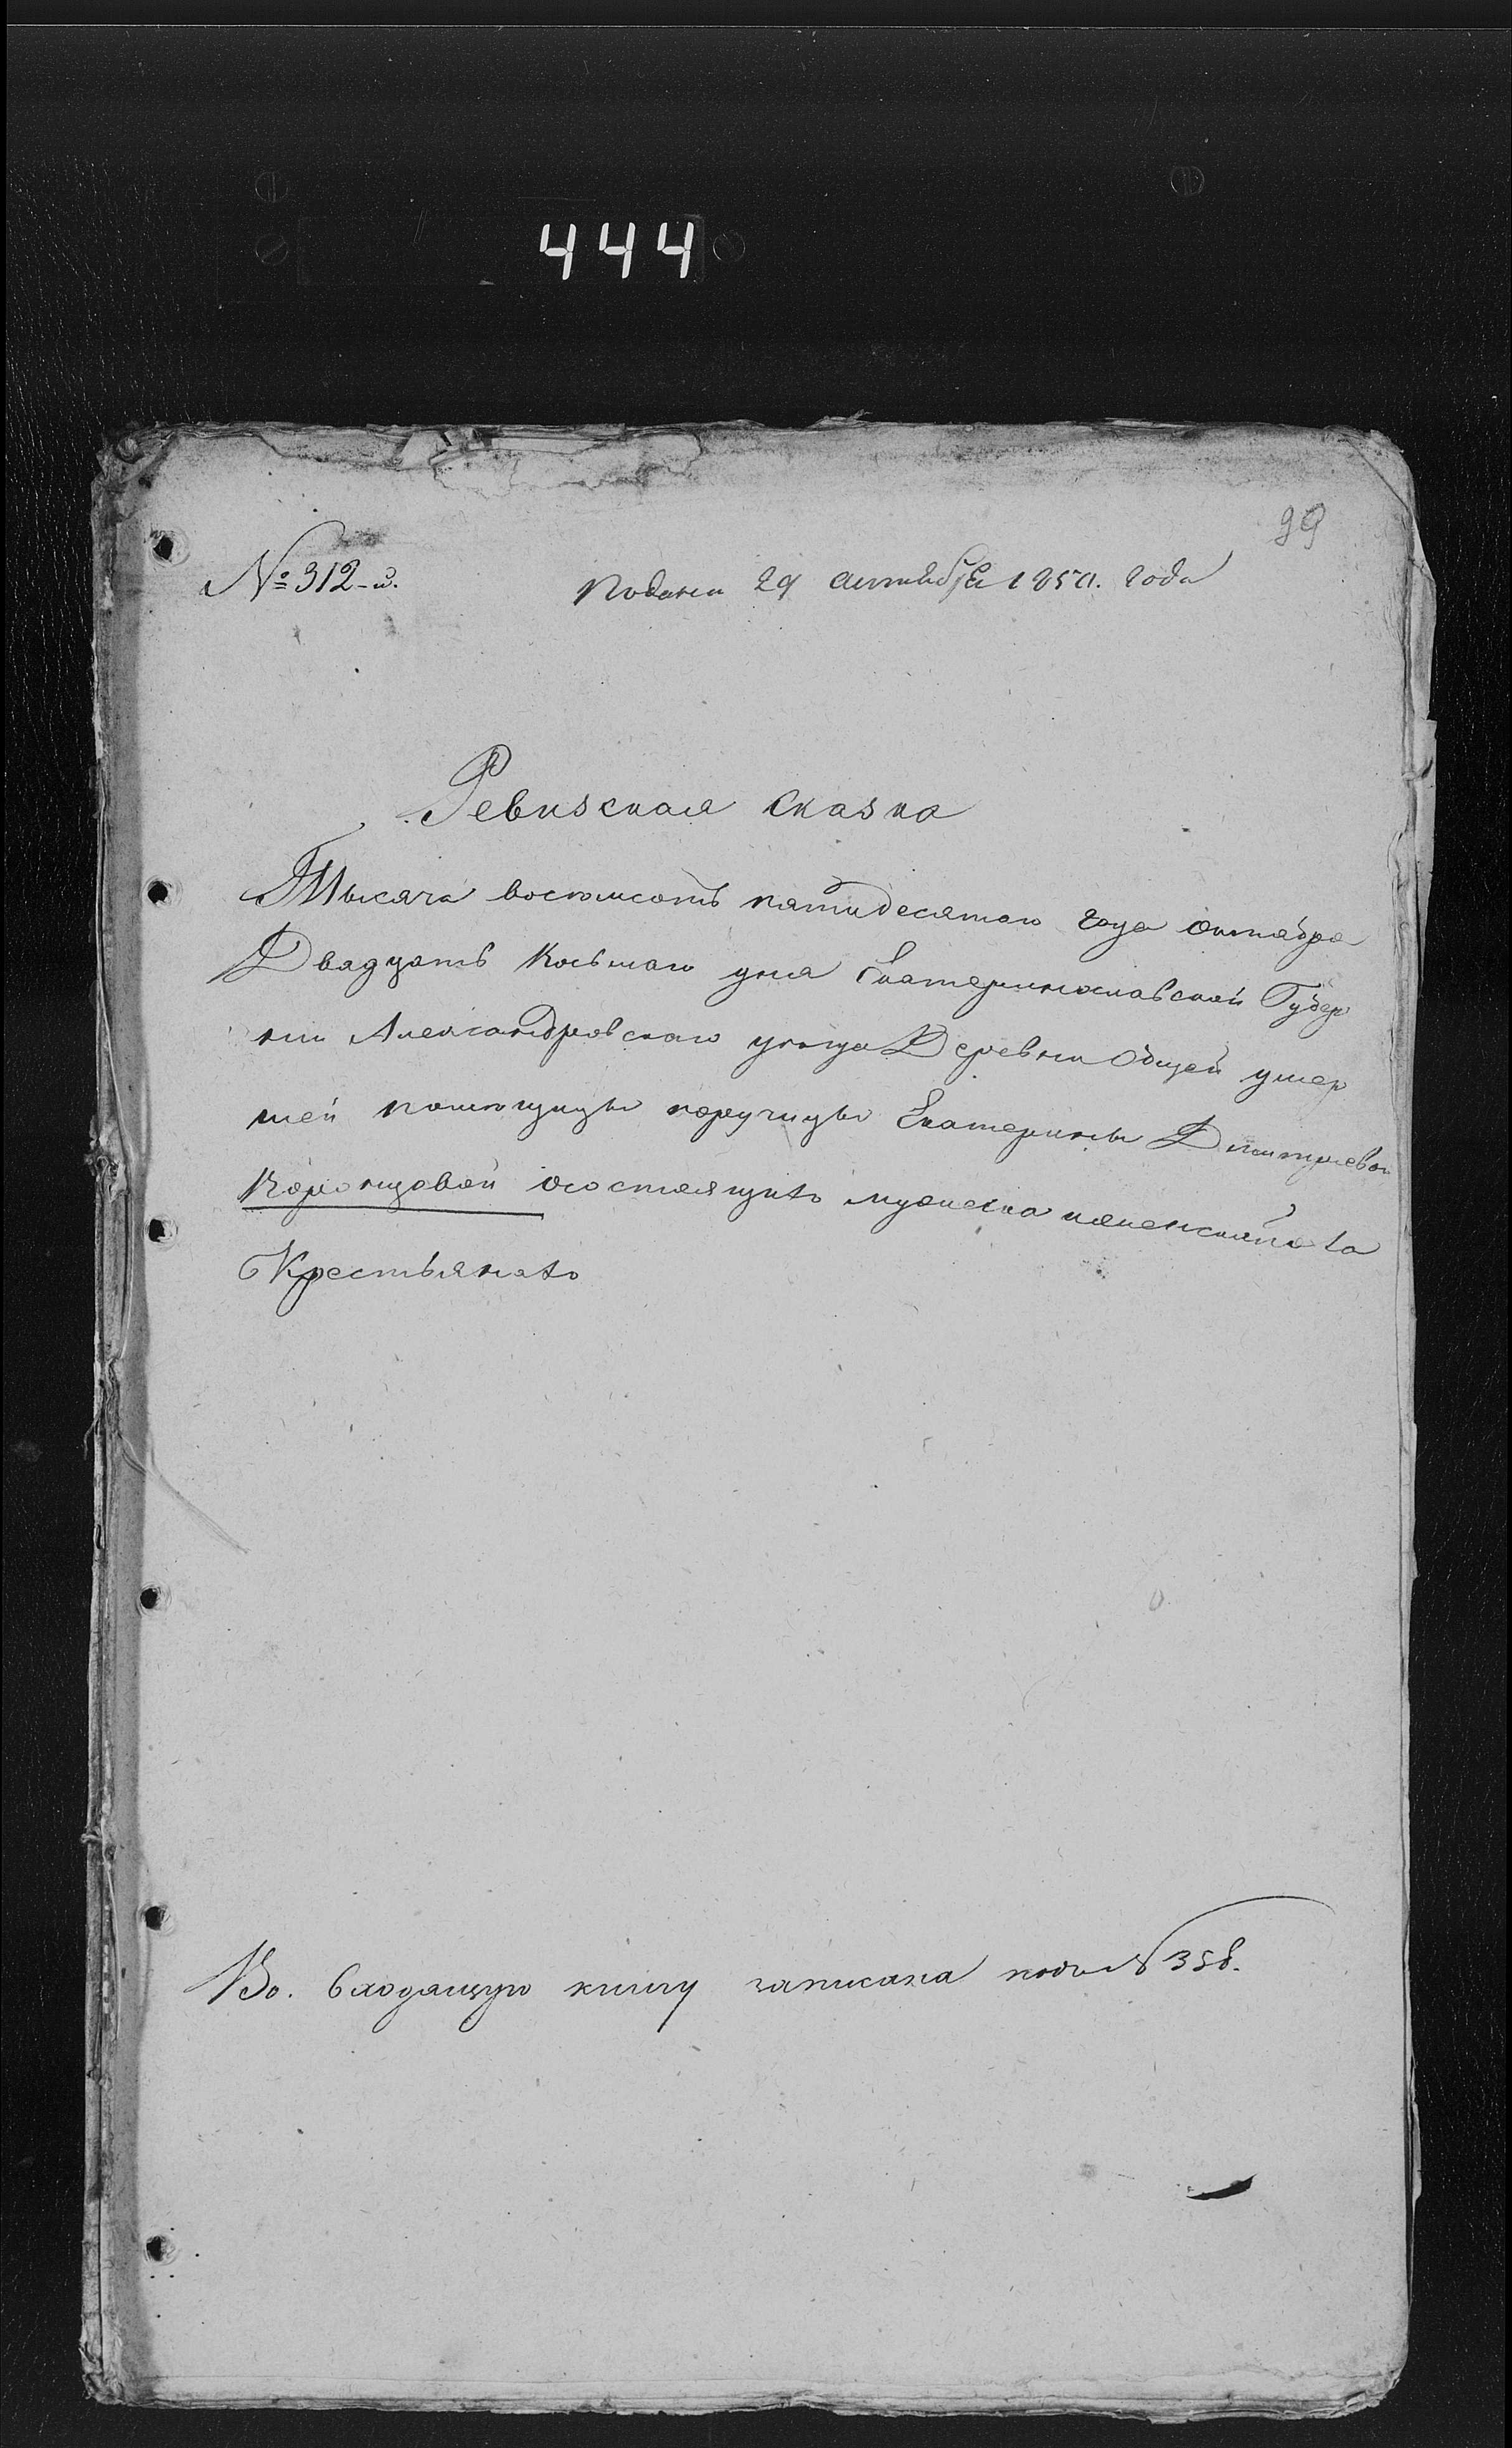 444
99
№ 312-й.
Подана 29 октября 1850. года
Ревизская сказка
Тысяча восемсотъ пятидесятого года октября
Двадцать восьмаго дня Екатеринославской Губер
нии Александровскаго уезда Деревни Общей умер
шей помещицы поручицы Екатерины Дмитриевой
осостоящихъ мужеска иженска пола
Крестьянахъ
Во. входящую книгу записана подъ № 358.